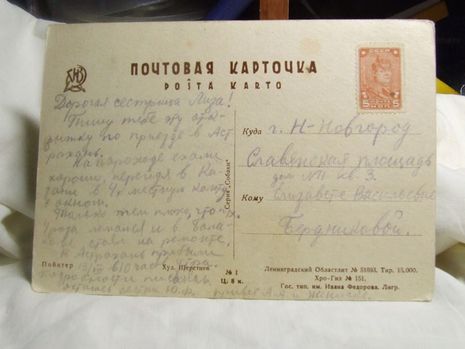 ПОЧТОВАЯ КАРТОЧКА
POŜTA KARTO
Дорогая сестрица Лиза!
Пишу тебе эту откр-
ытку по приезде в Аст
рахань.
На пароходе ехали
хорошо, перейдя в Ка-
зани в 4х местную каюту
с окном.
Только тем плохо, что
и в Бала-
кове стали на ремонте,
В Астрахань прибыли
Куда г. Н-Новгород
Славенская площадь
дом № кв. 3.
Кому Елизавете Васильевне
Бердниковой.
Серия „Собаки"
Пойнтер
Худ. Шерстнев
№ 1
Ц. 8 к.
Ленинградский Областлит № 51693. Тир. 15.000.
Хро-Гиз № 151.
Гос. тип. им. Ивана Федорова, Лнгр.
СССР
5 5